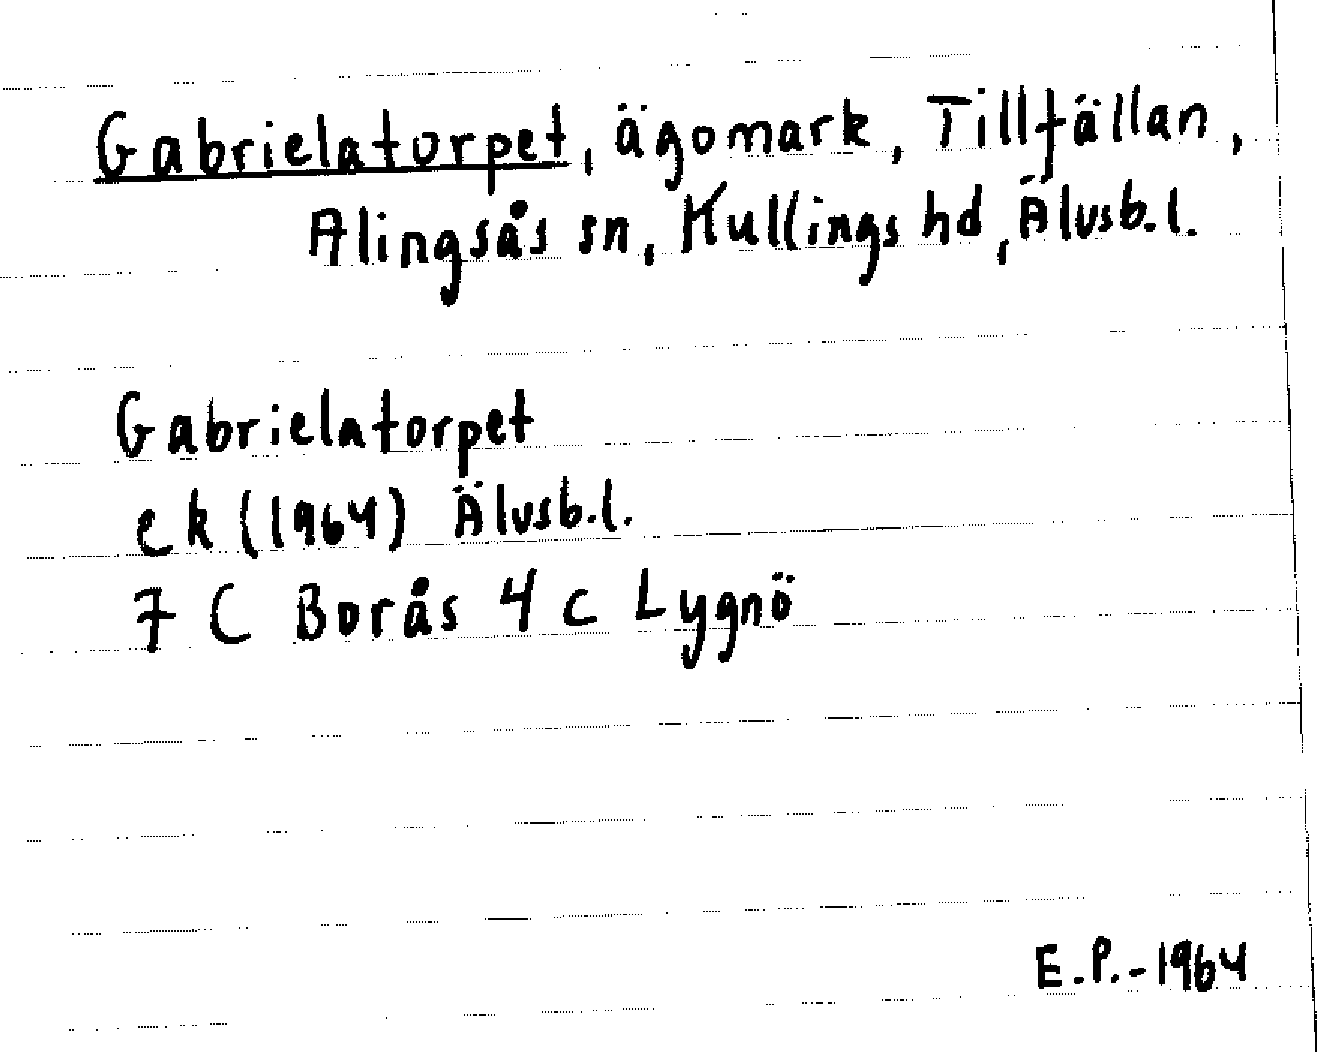 Gabrielatorpet, ägomark, Tillfällan,
Alingsås sn, Kullings hd, Älvsb.l.
Gabrielatorpet
ek (1964) Älvsb.l.
7 C Borås 4 c Lygnö
E.P.-1964